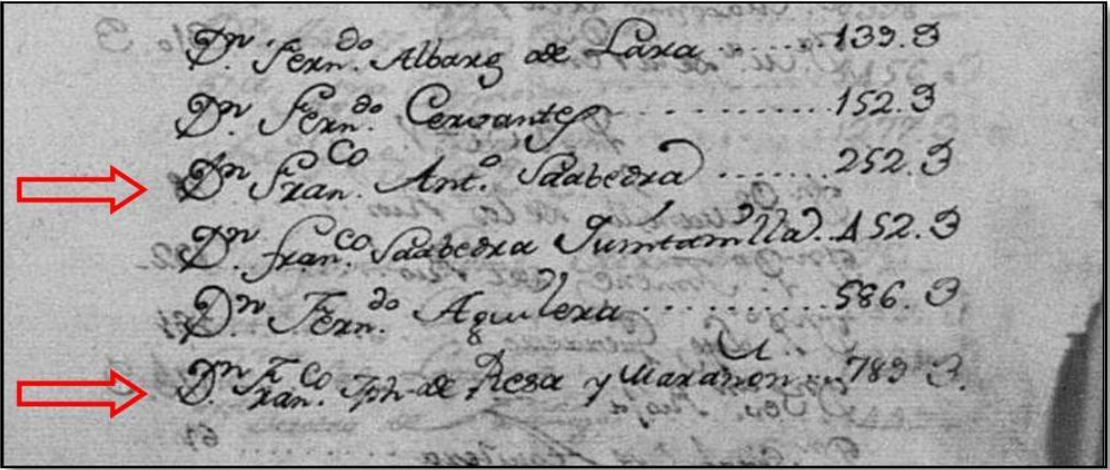 Dn. Fern.do Albarg de Lara ........139.B
Dn. Fern.do Cervantes ............152.B
Dn. Fran.co Ant.o Saabedra .......252.B
Dn. fran.co Saabedra ..452.B
Dn. Fern.do Aguilera ............586.B
Dn. Fran.co Jph de Resa y Marañon ...789.B.